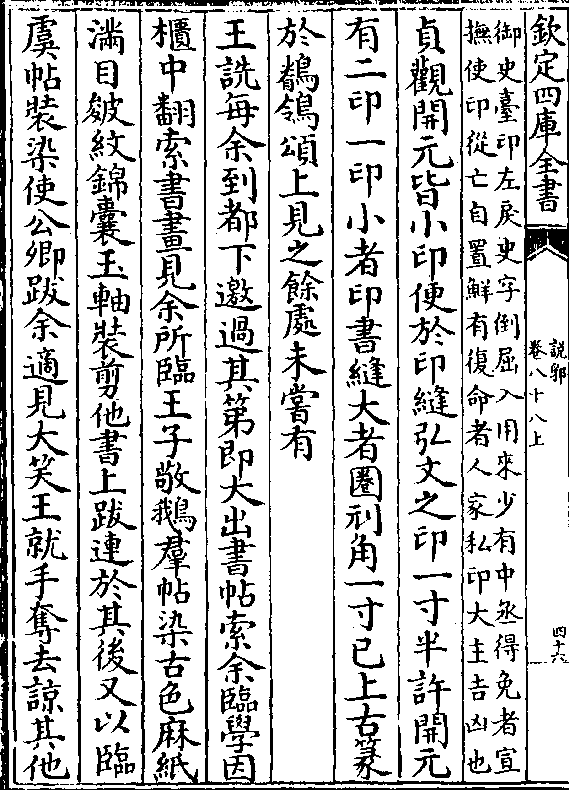 欽定四庫全書
說郛
卷八十八上
四十六
御史臺印左戾史字倒屈入用來少有中丞得免者宣
撫使印從亡自置鮮有復命者人家私印大主吉凶也
貞觀開元皆小印便於印縫弘文之印一寸半許開元
有二印一印小者印書縫大者圈刓角一寸已上古篆
於鶺鴒頌上見之餘處未嘗有
王詵每余到都下邀過其第即大出書帖索余臨學因
櫃中翻索書畫見余所臨王子敬鵝羣帖染古色麻紙
滿目皴紋錦囊玉軸裝剪他書上跋連於其後又以臨
虞帖裝染使公卿跋余適見大笑王就手奪去諒其他